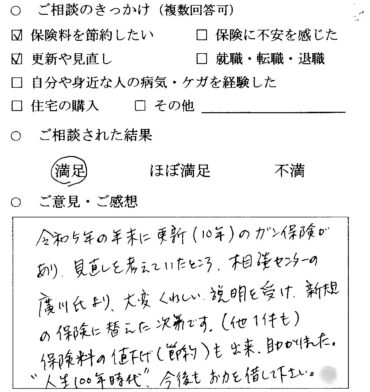 ○ ご相談のきっかけ（複数回答可）
☑ 保険料を節約したい □ 保険に不安を感じた
☑ 更新や見直し □ 就職・転職・退職
□ 自分や身近な人の病気・ケガを経験した
□ 住宅の購入 □ その他
○ ご相談された結果
満足 ほぼ満足 不満
○ ご意見・ご感想
令和5年の年末に更新（10年）のガン保険が
あり、見直しを考えていたところ、相談センターの
廣川氏より、大変くわしい説明を受け、新規
の保険に替えた次第です。（他1件も）
保険料の値下げ（節約）も出来、助かりました。
"人生100年時代"、今後もお力を借して下さい。